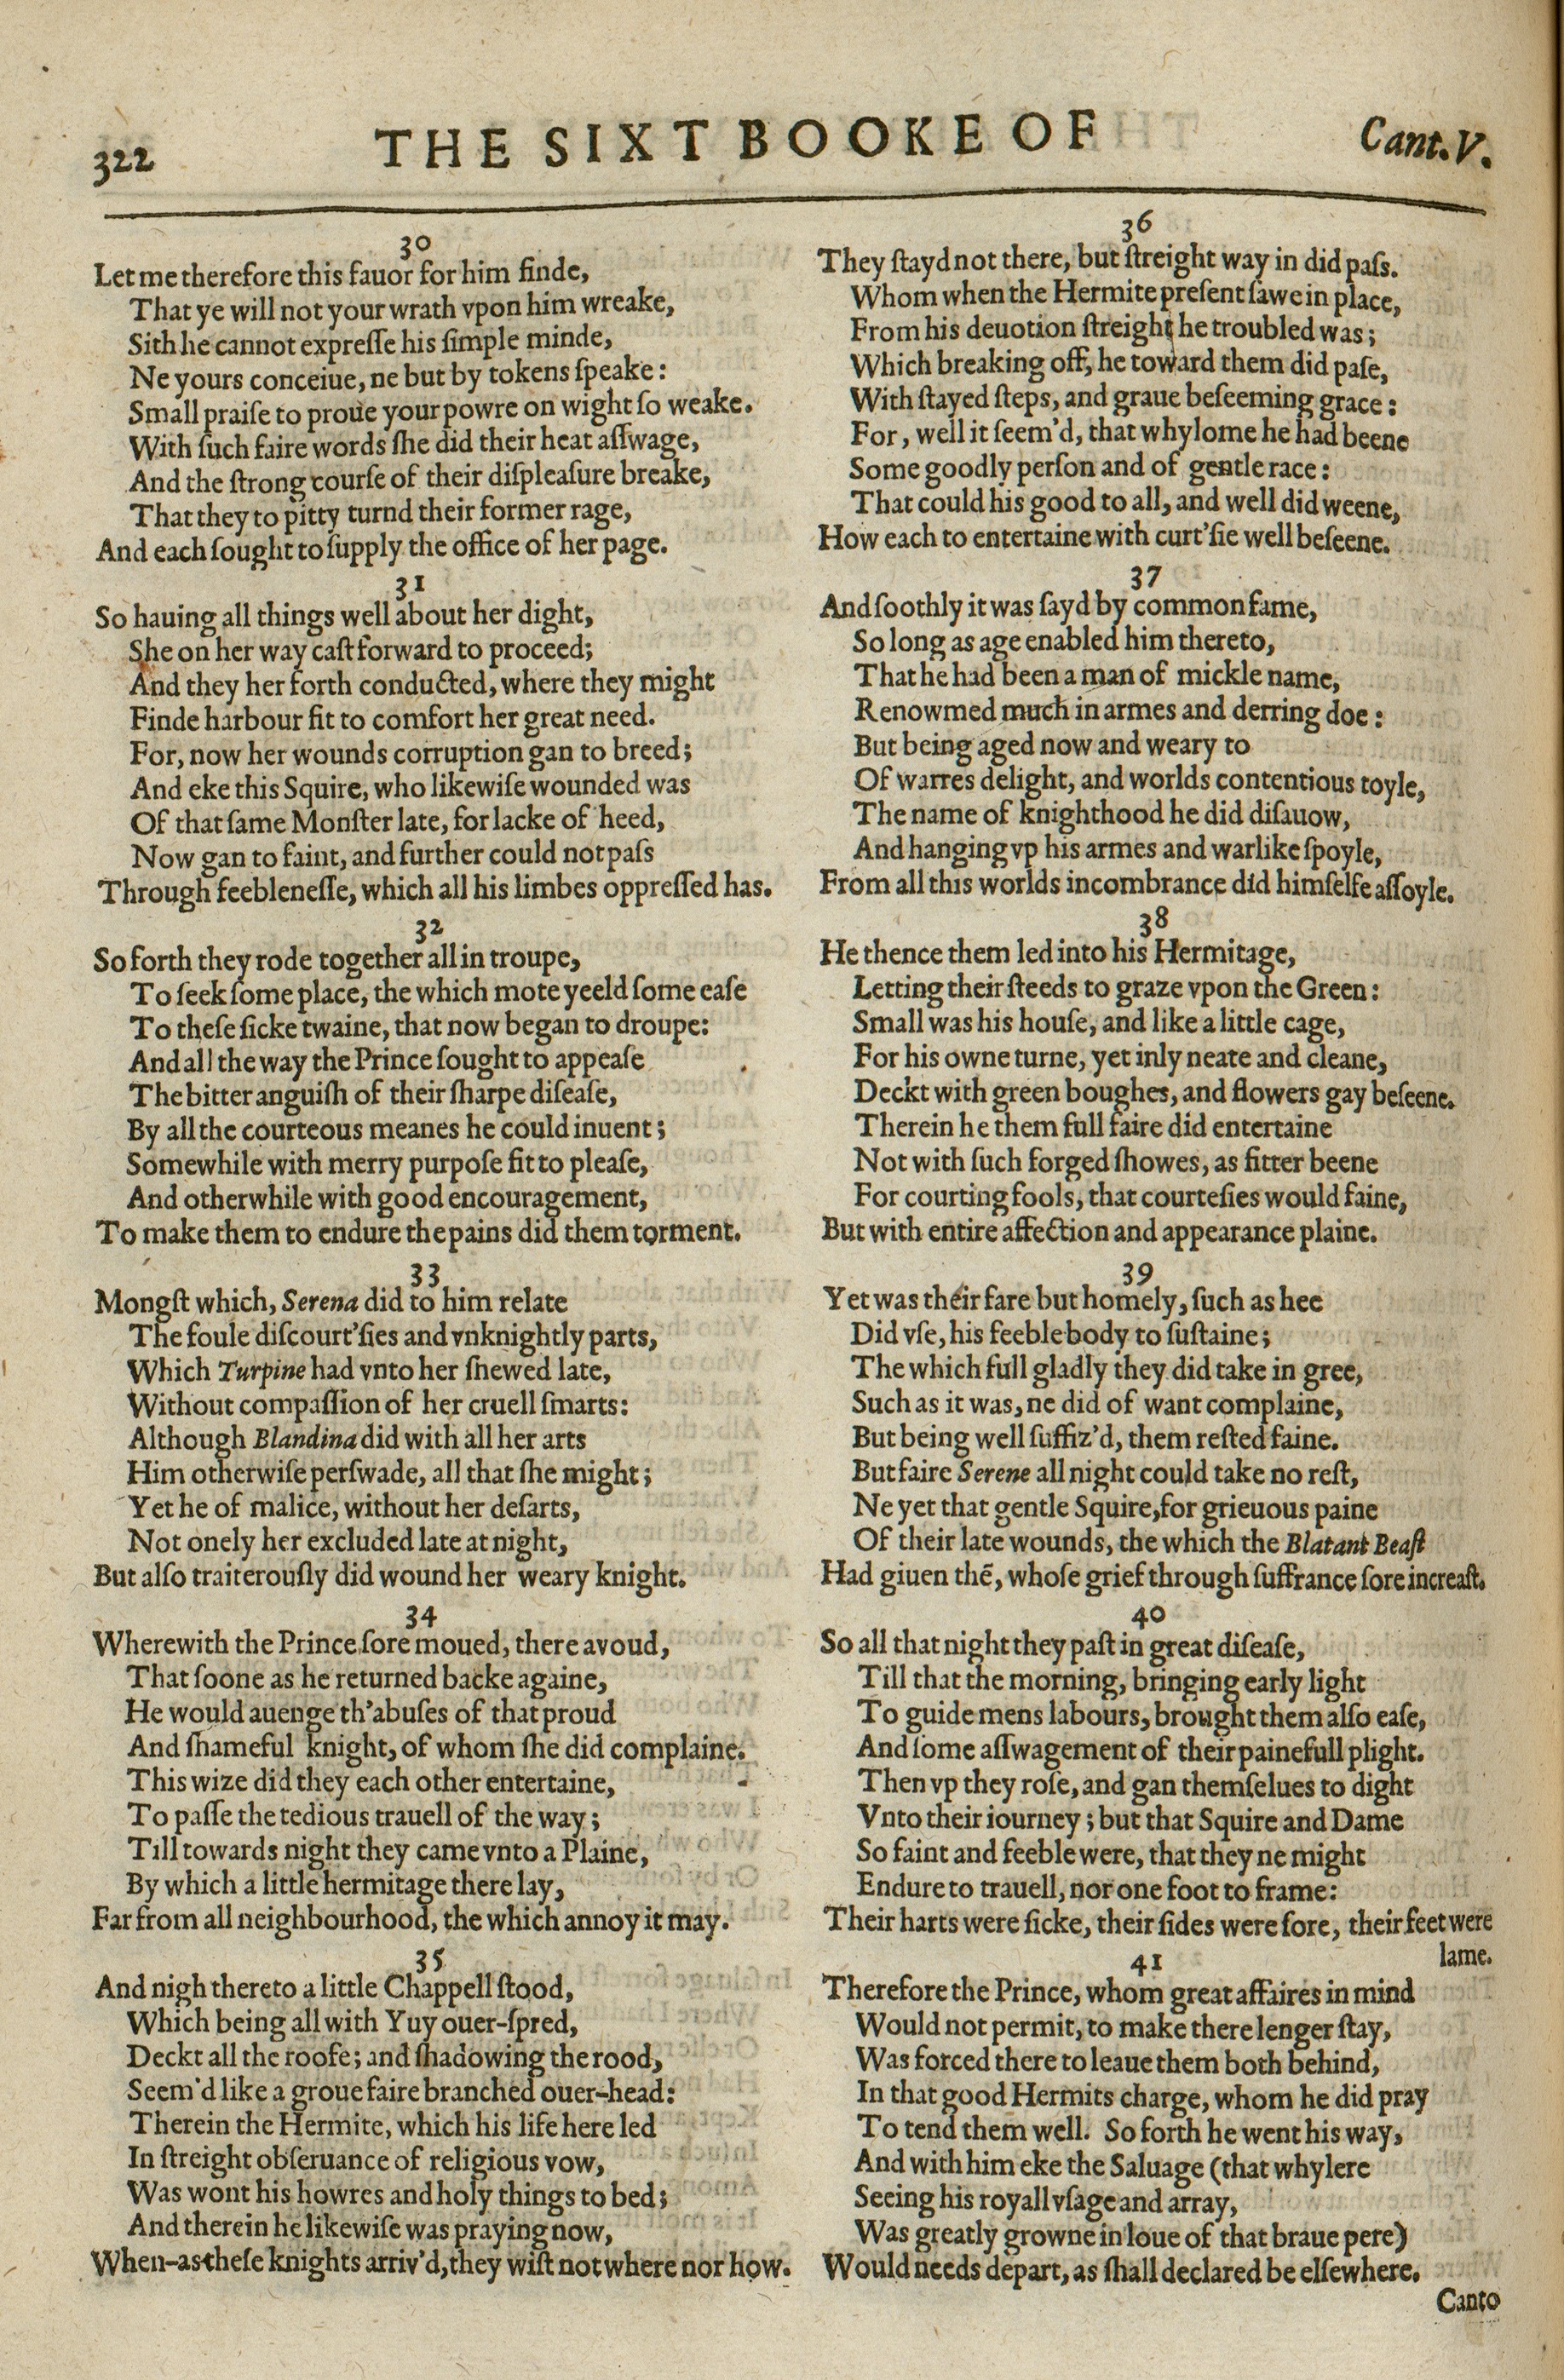 322 THE SIXT BOOKE OF Cant. V.
30
Let me therefore this fauor for him finde,
That ye will not your wrath vpon him wreake,
Sith he cannot expreſſe his ſimple minde,
Ne yours conceiue, ne but by tokens ſpeake:
Small praiſe to proue your powre on wight ſo weake.
With ſuch faire words ſhe did their heat aſſwage,
And the ſtrong courſe of their diſpleaſure breake,
That they to pitty turnd their former rage,
And each ſought to ſupply the office of her page.
31
So hauing all things well about her dight,
She on her way caſt forward to proceed;
And they her forth conducted, where they might
Finde harbour fit to comfort her great need.
For, now her wounds corruption gan to breed;
And eke this Squire, who likewiſe wounded was
Of that ſame Monſter late, for lacke of heed,
Now gan to faint, and further could not paſs
Through feebleneſſe, which all his limbes oppreſſed has.
32
So forth they rode together all in troupe,
To ſeek ſome place, the which mote yeeld ſome eaſe
To theſe ſicke twaine, that now began to droupe:
And all the way the Prince ſought to appeaſe
The bitter anguiſh of their ſharpe diſeaſe,
By all the courteous meanes he could inuent;
Somewhile with merry purpoſe fit to pleaſe,
And otherwhile with good encouragement,
To make them to endure the pains did them torment.
33
Mongſt which, Serena did to him relate
The foule diſcourt'ſies and vnknightly parts,
Which Turpine had vnto her ſhewed late,
Without compaſſion of her cruell ſmarts:
Although Blandina did with all her arts
Him otherwiſe perſwade, all that ſhe might;
Yet he of malice, without her deſarts,
Not onely her excluded late at night,
But alſo traiterouſly did wound her weary knight.
34
Wherewith the Prince ſore moued, there avoud,
That ſoone as he returned backe againe,
He would auenge th'abuſes of that proud
And ſhameful knight, of whom ſhe did complaine.
This wize did they each other entertaine,
To paſſe the tedious trauell of the way;
Till towards night they came vnto a Plaine,
By which a little hermitage there lay,
Far from all neighbourhood, the which annoy it may.
35
And nigh thereto a little Chappell ſtood,
Which being all with Yuy ouer-ſpred,
Deckt all the roofe; and ſhadowing the rood,
Seem'd like a groue faire branched ouer-head:
Therein the Hermite, which his life here led
In ſtreight obſeruance of religious vow,
Was wont his howres and holy things to bed;
And therein he likewiſe was praying now,
When-as theſe knights arriv'd, they wiſt not where nor how.
36
They ſtayd not there, but ſtreight way in did paſs.
Whom when the Hermite preſent ſawe in place,
From his deuotion ſtreight he troubled was;
Which breaking off, he toward them did paſe,
With ſtayed ſteps, and graue beſeeming grace:
For, well it ſeem'd, that whylome he had beene
Some goodly perſon and of gentle race:
That could his good to all, and well did weene,
How each to entertaine with curt'ſie well beſeene.
37
And ſoothly it was ſayd by common fame,
So long as age enabled him thereto,
That he had been a man of mickle name,
Renowmed much in armes and derring doe:
But being aged now and weary to
Of warres delight, and worlds contentious toyle,
The name of knighthood he did diſauow,
And hanging vp his armes and warlike ſpoyle,
From all this worlds incombrance did himſelfe aſſoyle.
38
He thence them led into his Hermitage,
Letting their ſteeds to graze vpon the Green:
Small was his houſe, and like a little cage,
For his owne turne, yet inly neate and cleane,
Deckt with green boughes, and flowers gay beſeene.
Therein he them full faire did entertaine
Not with ſuch forged ſhowes, as fitter beene
For courting fools, that courteſies would faine,
But with entire affection and appearance plaine.
39
Yet was their fare but homely, ſuch as hee
Did vſe, his feeble body to ſuſtaine;
The which full gladly they did take in gree,
Such as it was, ne did of want complaine,
But being well ſuffiz'd, them reſted faine.
But faire Serene all night could take no reſt,
Ne yet that gentle Squire, for grieuous paine
Of their late wounds, the which the Blatant Beaſt
Had giuen thē, whoſe grief through ſuffrance ſore increaſt.
40
So all that night they paſt in great diſeaſe,
Till that the morning, bringing early light
To guide mens labours, brought them alſo eaſe,
And ſome aſſwagement of their painefull plight.
Then vp they roſe, and gan themſelues to dight
Vnto their iourney; but that Squire and Dame
So faint and feeble were, that they ne might
Endure to trauell, nor one foot to frame:
Their harts were ſicke, their ſides were ſore, their feet were
lame.
41
Therefore the Prince, whom great affaires in mind
Would not permit, to make there lenger ſtay,
Was forced there to leaue them both behind,
In that good Hermits charge, whom he did pray
To tend them well. So forth he went his way,
And with him eke the Saluage (that whylere
Seeing his royall vſage and array,
Was greatly growne in loue of that braue pere)
Would needs depart, as ſhall declared be elſewhere.
Canto